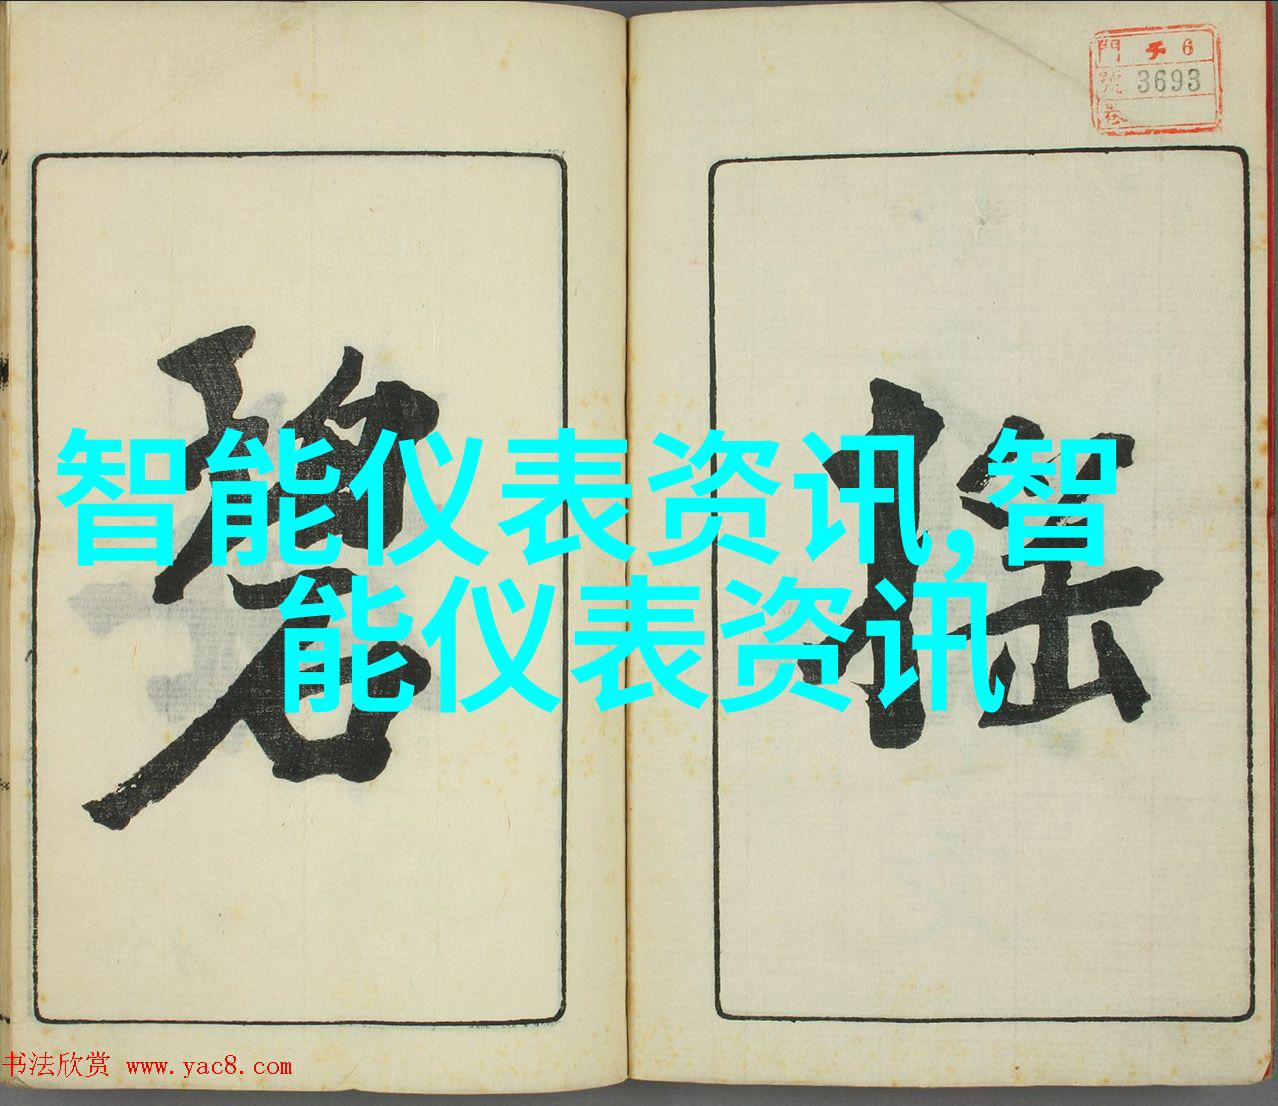 門 チ 6
號 3693
卷
搖
碧
智能仪表资讯,智
能仪表资讯
书法欣赏 www.yac8.com